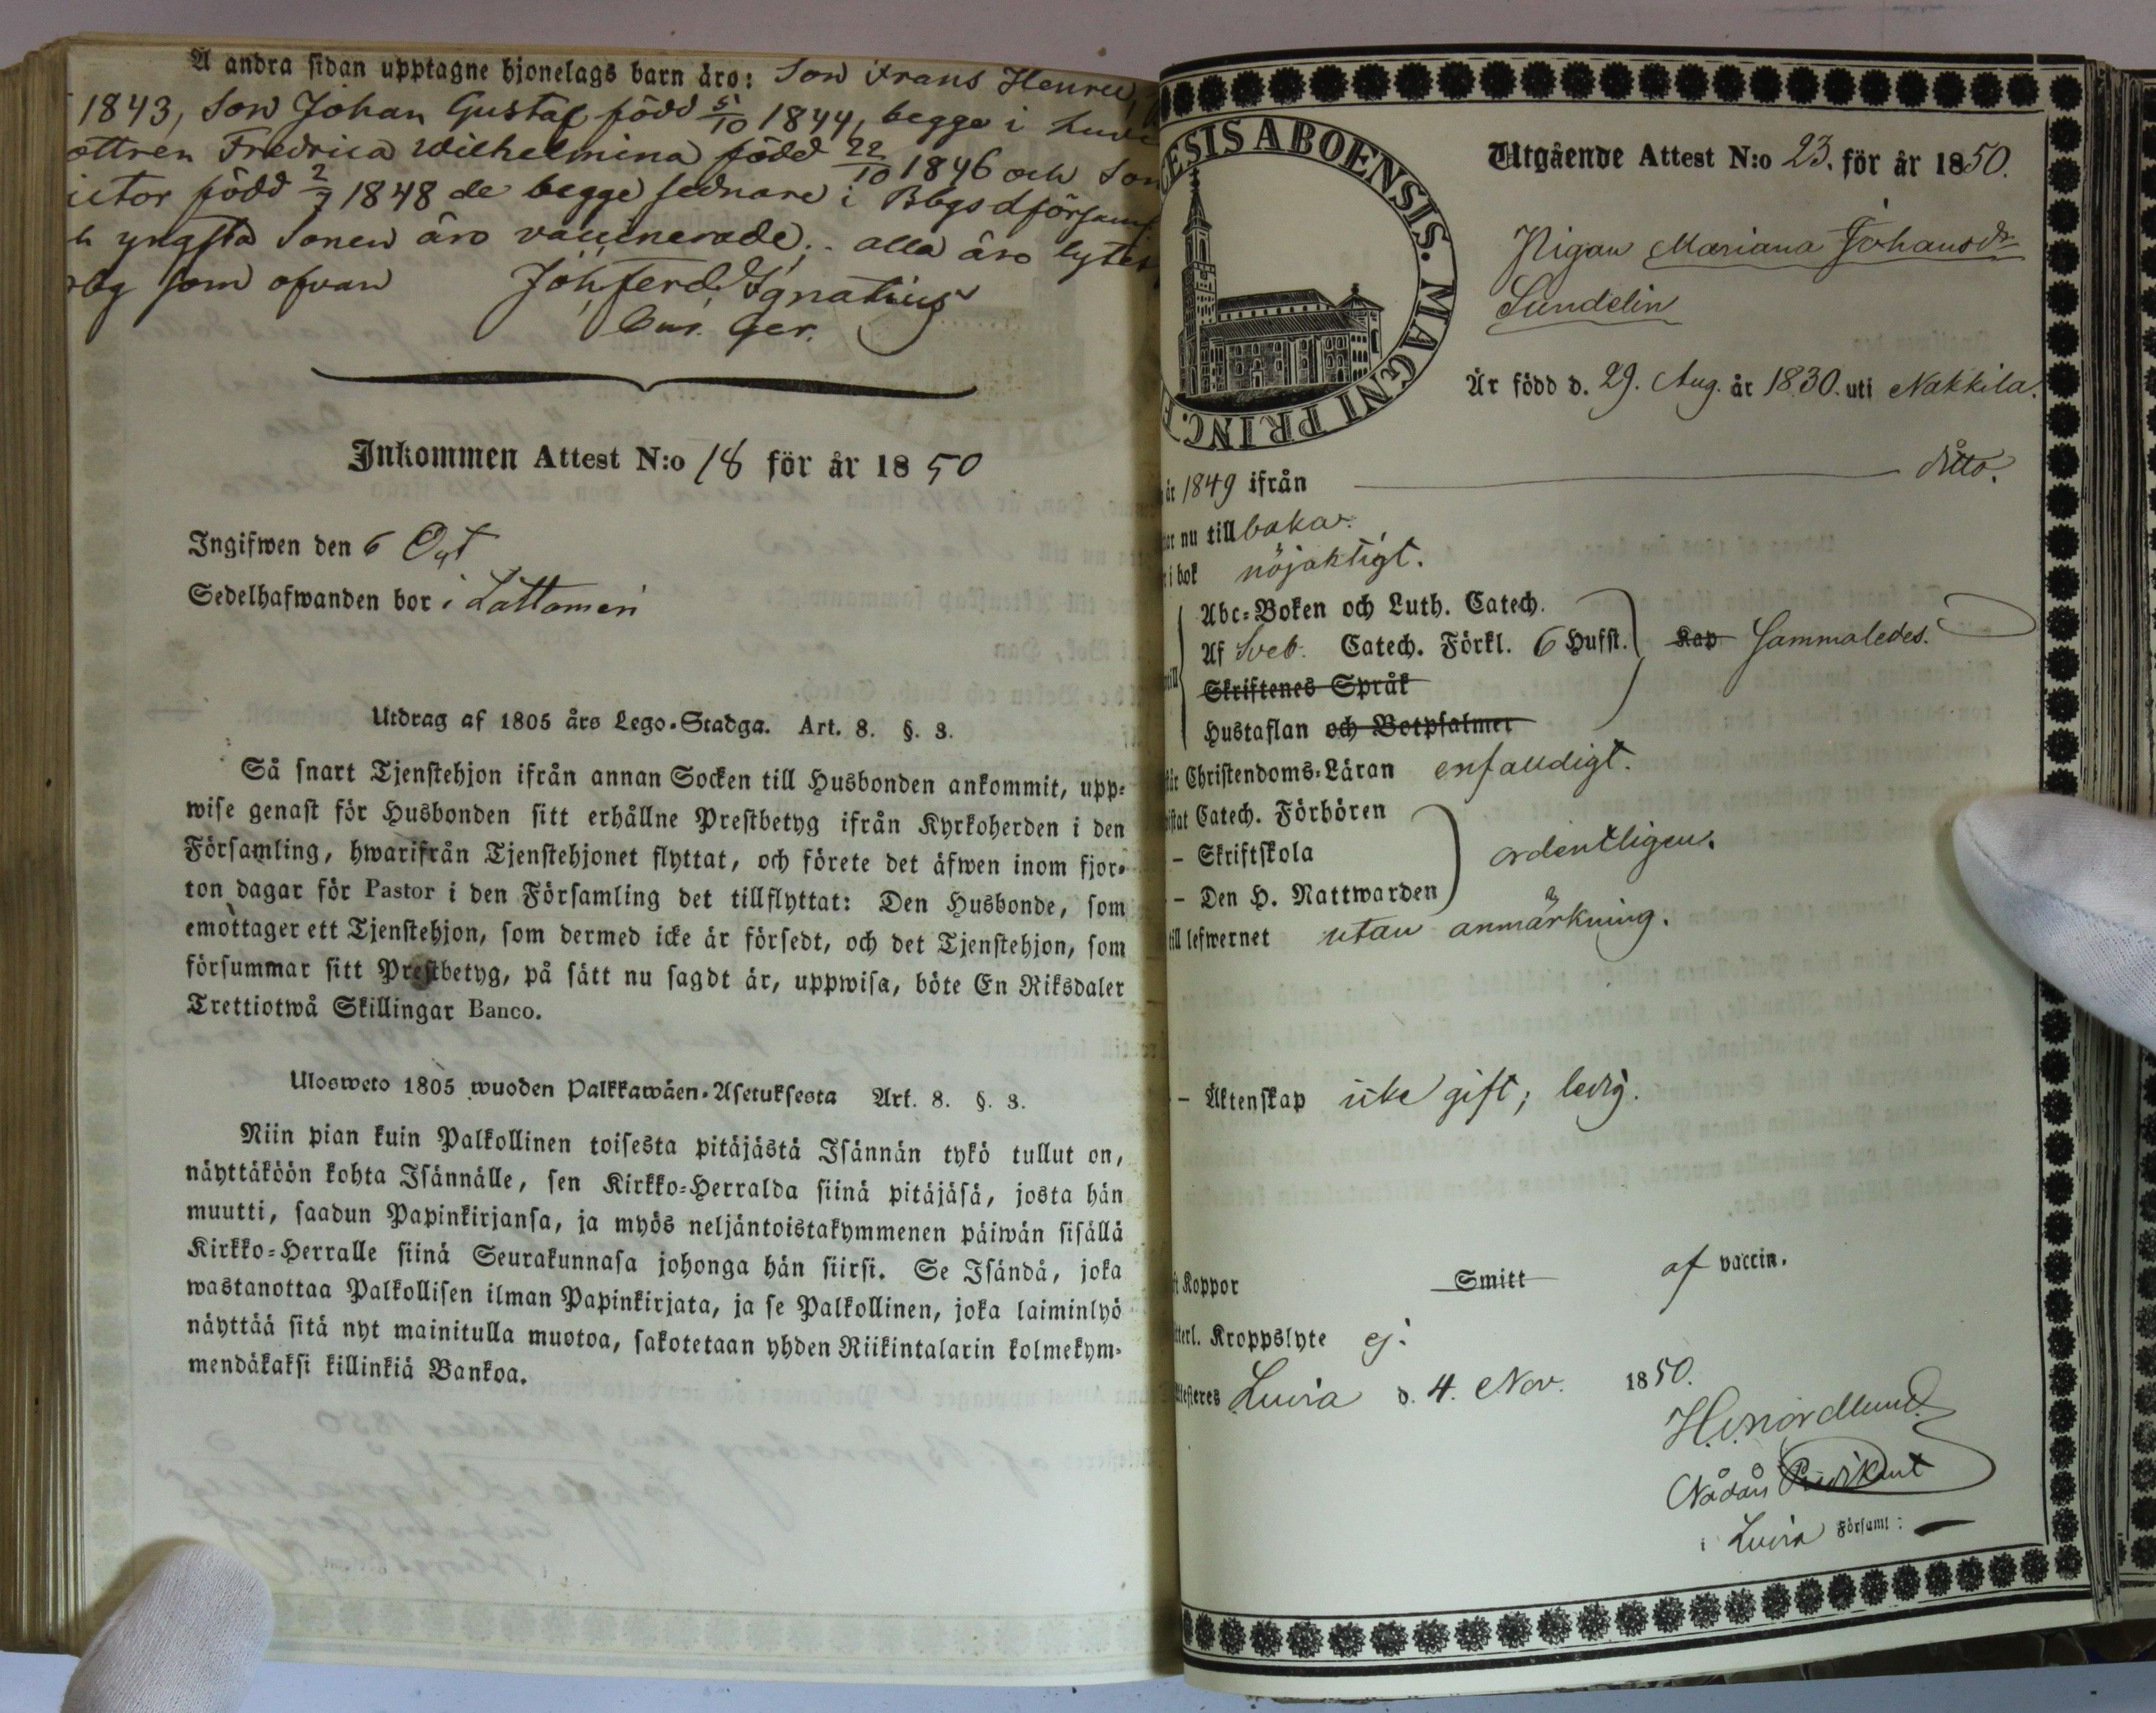 Å andra sidan upptagne hjonelags barn äro: Son Frans Henric,
1843, Son Johan Gustaf född 5/10 1844, begge i Luvi
ottren Fredrica Wilhelmina född 22/10 1846 och Son
ictor född 2/7 1848 de begge sednare i Bbgs dförsaml
h yngsta Sonen äro vaccinerade; alla äro lytes
bg som ofvan Joh. Ferd. Ignatius
Inkommen Attest N:o 18 för år 1850
Ingifwen den 6 Oct
Sedelhafwanden bor i Lattomeri
Utdrag af 1805 års Lego-Stadga. Art. 8. §. 3.
Så snart Tjenstehjon ifrån annan Socken till Husbonden ankommit, upp-
wise genast för Husbonden sitt erhållne Prestbetyg ifrån Kyrkoherden i den
Församling, hwarifrån Tjenstehjonet flyttat, och förete det äfwen inom fjor-
ton dagar för Pastor i den Församling det tillflyttat: Den Husbonde, som
emottager ett Tjenstehjon, som dermed icke är försedt, och det Tjenstehjon, som
försummar sitt Prestbetyg, på sätt nu sagdt är, uppwisa, böte En Riksdaler
Trettiotwå Skillingar Banco.
Ulosweto 1805 wuoden Palkkawäen-Asetuksesta Art. 8. §. 3.
Niin pian kuin Palkollinen toisesta pitäjästä Isännän tykö tullut on,
näyttäköön kohta Isännälle, sen Kirkko-Herralda siinä pitäjäsä, josta hän
muutti, saadun Papinkirjansa, ja myös neljäntoistakymmenen päiwän sisällä
Kirkko-Herralle siinä Seurakunnasa johonga hän siirsi. Se Isändä, joka
wastanottaa Palkollisen ilman Papinkirjata, ja se Palkollinen, joka laiminlyö
näyttää sitä nyt mainitulla muotoa, sakotetaan yhden Riikintalarin kolmekym-
mendäkaksi killinkiä Bankoa.
ESIS ABOENSIS. MAGNI PRINC. F
Utgående Attest N:o 23. för år 1850.
Pigan Mariana Johansdr
Sundelin
Är född d. 29. Aug. år 1830. uti Nakkila.
år 1849 ifrån ditto.
nu till baka.
i bok nöjaktigt.
Abc-Boken och Luth. Catech.
Af Sveb. Catech. Förkl. 6 Hufst. Kap Sammaledes.
Skriftenes Språk
Hustaflan och Botpsalmer
Christendoms-Läran enfaldigt.
Catech. Förhören
– Skriftskola ordentligen.
– Den H. Nattwarden
till lefwernet utan anmärkning.
– Äktenskap icke gift; ledig.
Koppor Smitt af vaccin.
terl. Kroppslyte ej.
Luvia d. 4. Nov. 1850.
H. Nordlund
Nådårs Predikant
i Luvia Församl: